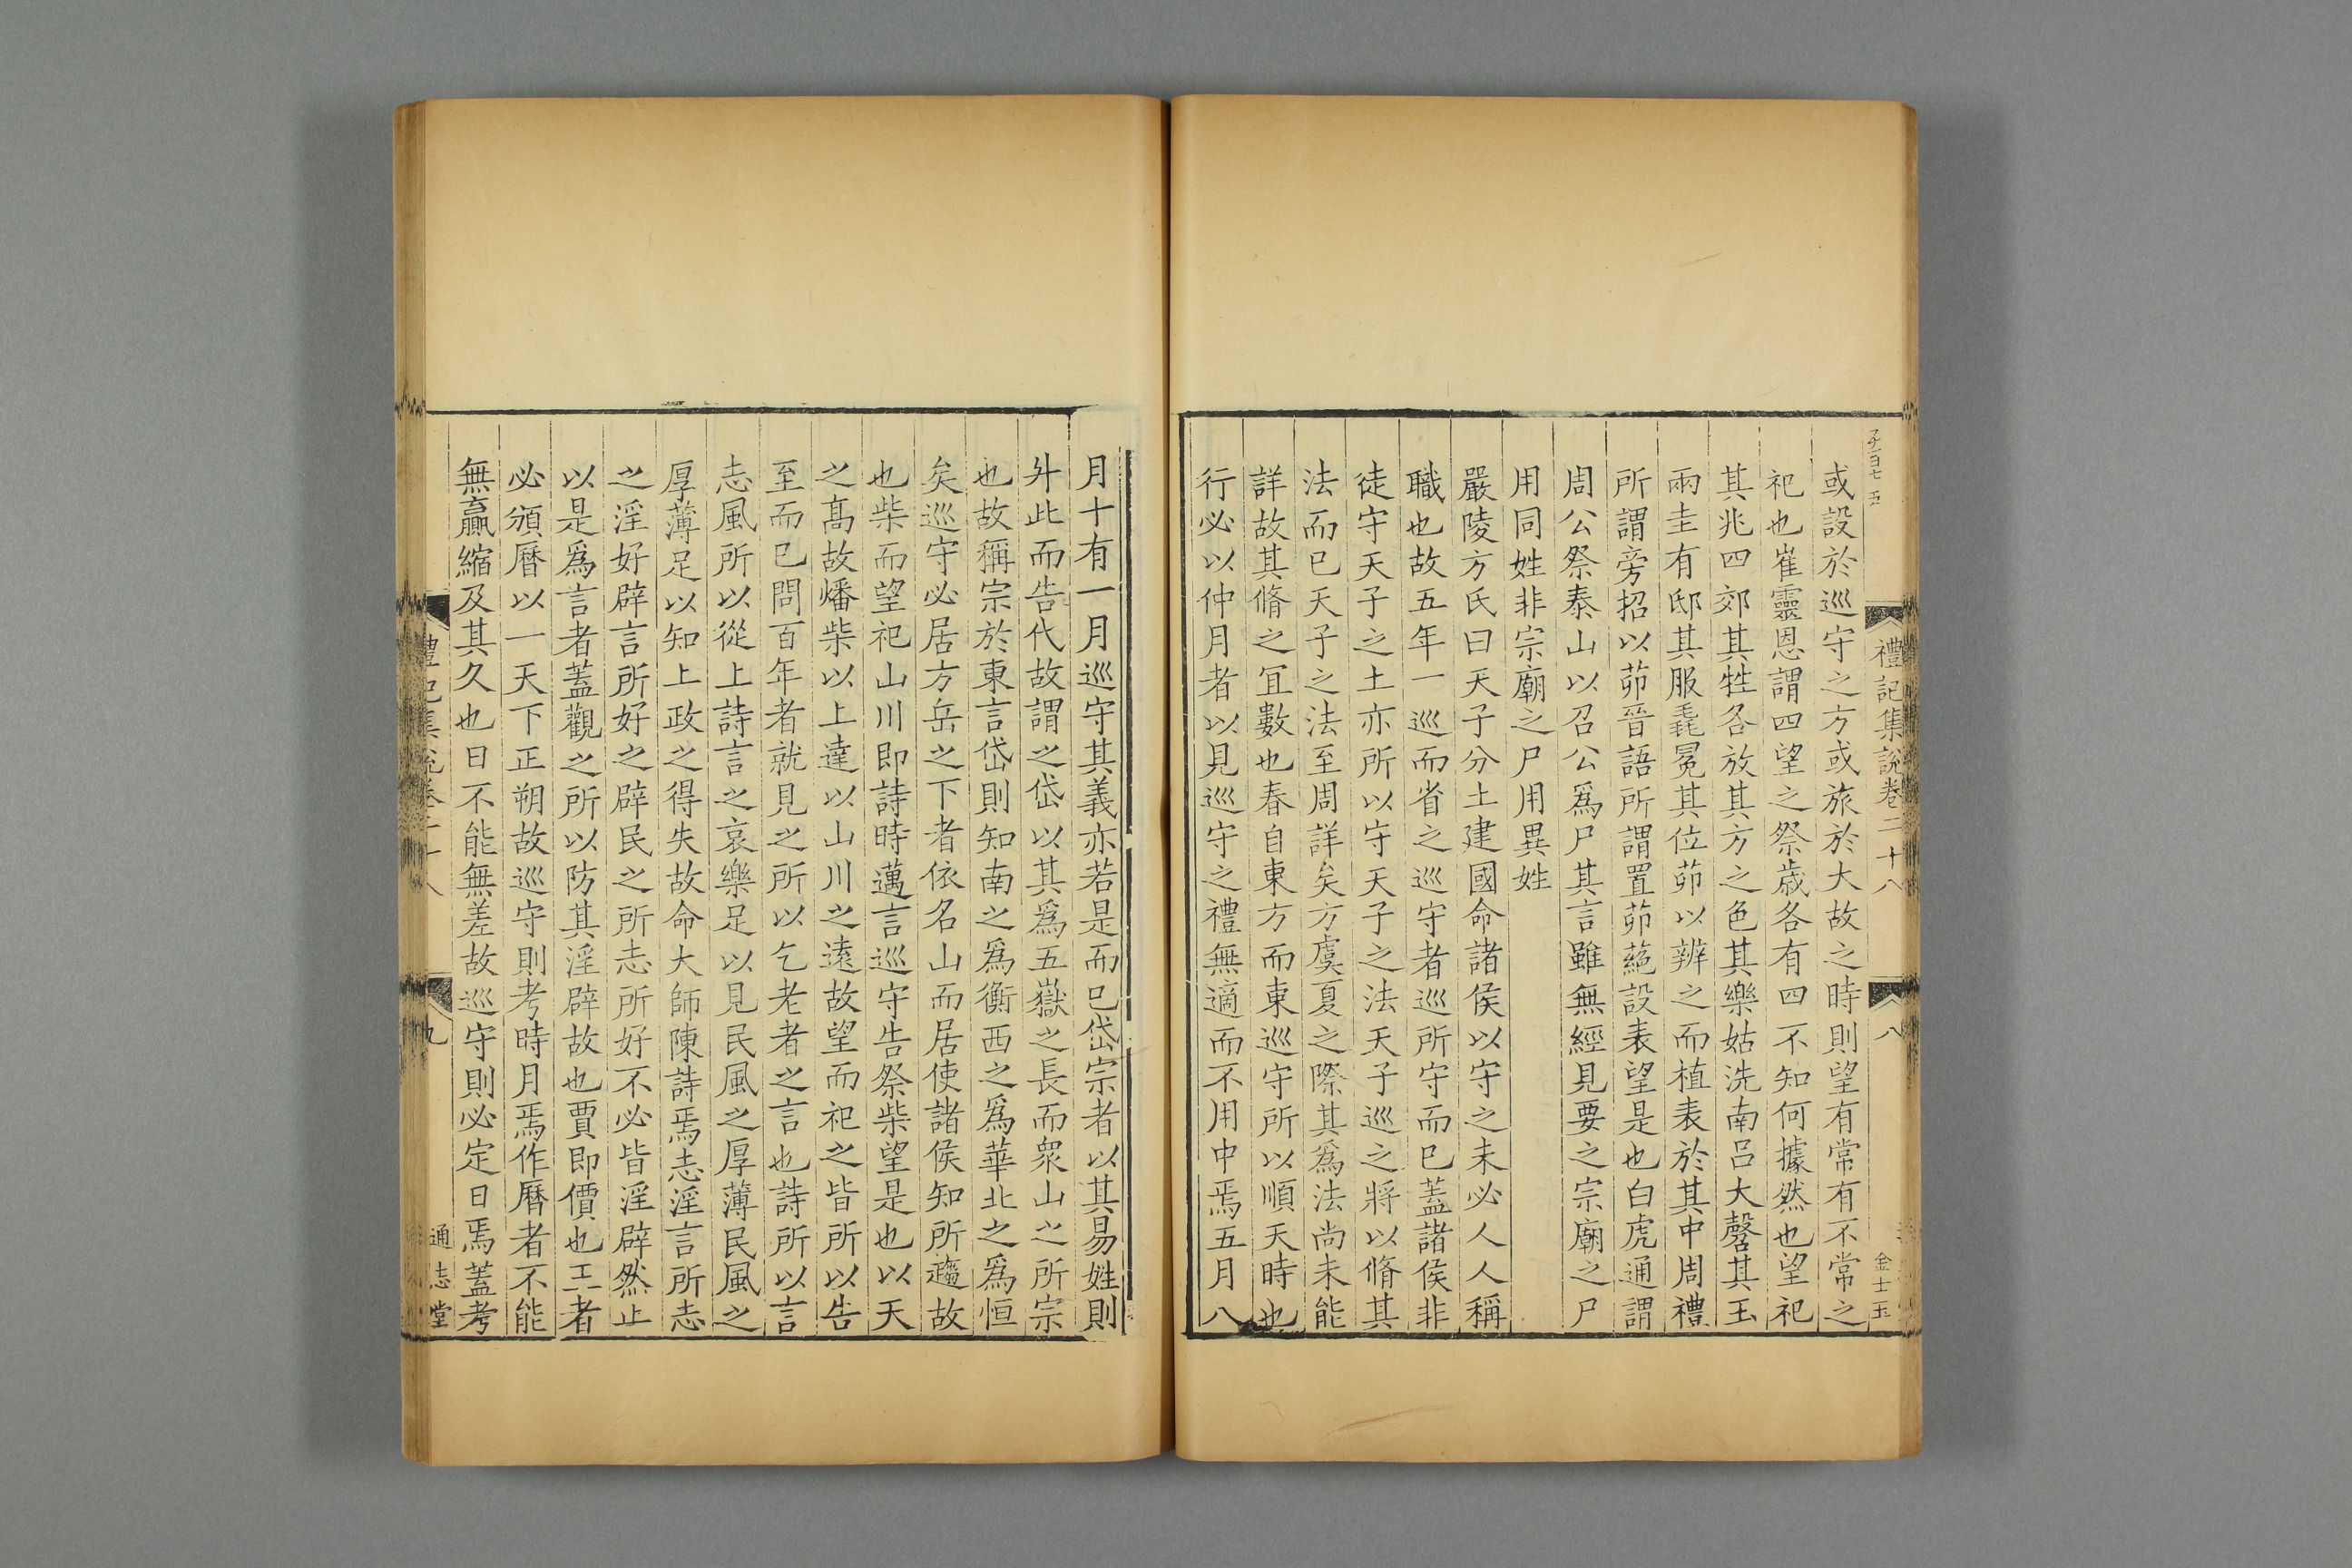 禮記集説卷二十八
八
金士玉
或設於巡守之方或旅於大故之時則望有常有不常之
祀也崔靈恩謂四望之祭歳各有四不知何據然也望祀
其兆四郊其牲各放其方之色其樂姑洗南吕大磬其玉
兩圭有邸其服毳冕其位茆以辨之而植表於其中周禮
所謂旁招以茆晉語所謂置茆蕝設表望是也白虎通謂
周公祭泰山以召公爲尸其言雖無經見要之宗廟之尸
用同姓非宗廟之尸用異姓
嚴陵方氏曰天子分土建國命諸侯以守之未必人人稱
職也故五年一巡而省之巡守者巡所守而已蓋諸侯非
徒守天子之土亦所以守天子之法天子巡之將以脩其
法而已天子之法至周詳矣方虞夏之際其爲法尚未能
詳故其脩之宜數也春自東方而東巡守所以順天時也
行必以仲月者以見巡守之禮無適而不用中焉五月八
月十有一月巡守其義亦若是而已岱宗者以其易姓則
升此而告代故謂之岱以其爲五嶽之長而衆山之所宗
也故稱宗於東言岱則知南之爲衡西之爲華北之爲恒
矣巡守必居方岳之下者依名山而居使諸侯知所趨故
也柴而望祀山川即詩時邁言巡守告祭柴望是也以天
之髙故燔柴以上達以山川之遠故望而祀之皆所以告
至而已問百年者就見之所以乞老者之言也詩所以言
志風所以從上詩言之哀樂足以見民風之厚薄民風之
厚薄足以知上政之得失故命大師陳詩焉志淫言所志
之淫好辟言所好之辟民之所志所好不必皆淫辟然止
以是爲言者蓋觀之所以防其淫辟故也賈即價也王者
必頒曆以一天下正朔故巡守則考時月焉作曆者不能
無贏縮及其久也日不能無差故巡守則必定日焉蓋考
禮記集説卷二十八
九
通志堂